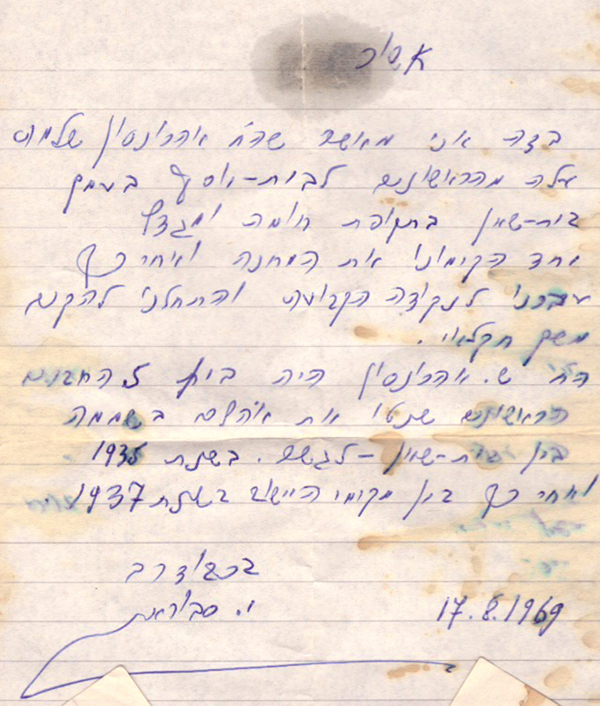 אישור
בזה אני מאשר שהח' אהרונסון שלמה
עלה מהראשונים לבית-יוסף בעמק
בית-שאן בתקופת חומה ומגדל
אחד הקימונו את המחנה ואחר כך
עברנו לנקודה הקבועה והתחלנו להקים
משק חקלאי.
הח' ש. אהרונסון היה בין החברים
הראשונים שנטו את אהלם בשממה
בין בית-שאן - לגשר. בשנת 1935
ואחר כך בין מקימי הישוב בשנת 1937
בכבוד רב
י. סבוראי
17.8.1969